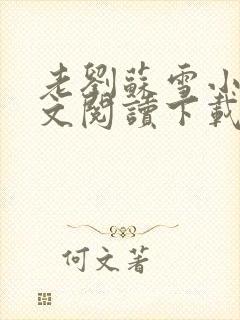 老劉蘇雪小
文閱讀下載
何文著